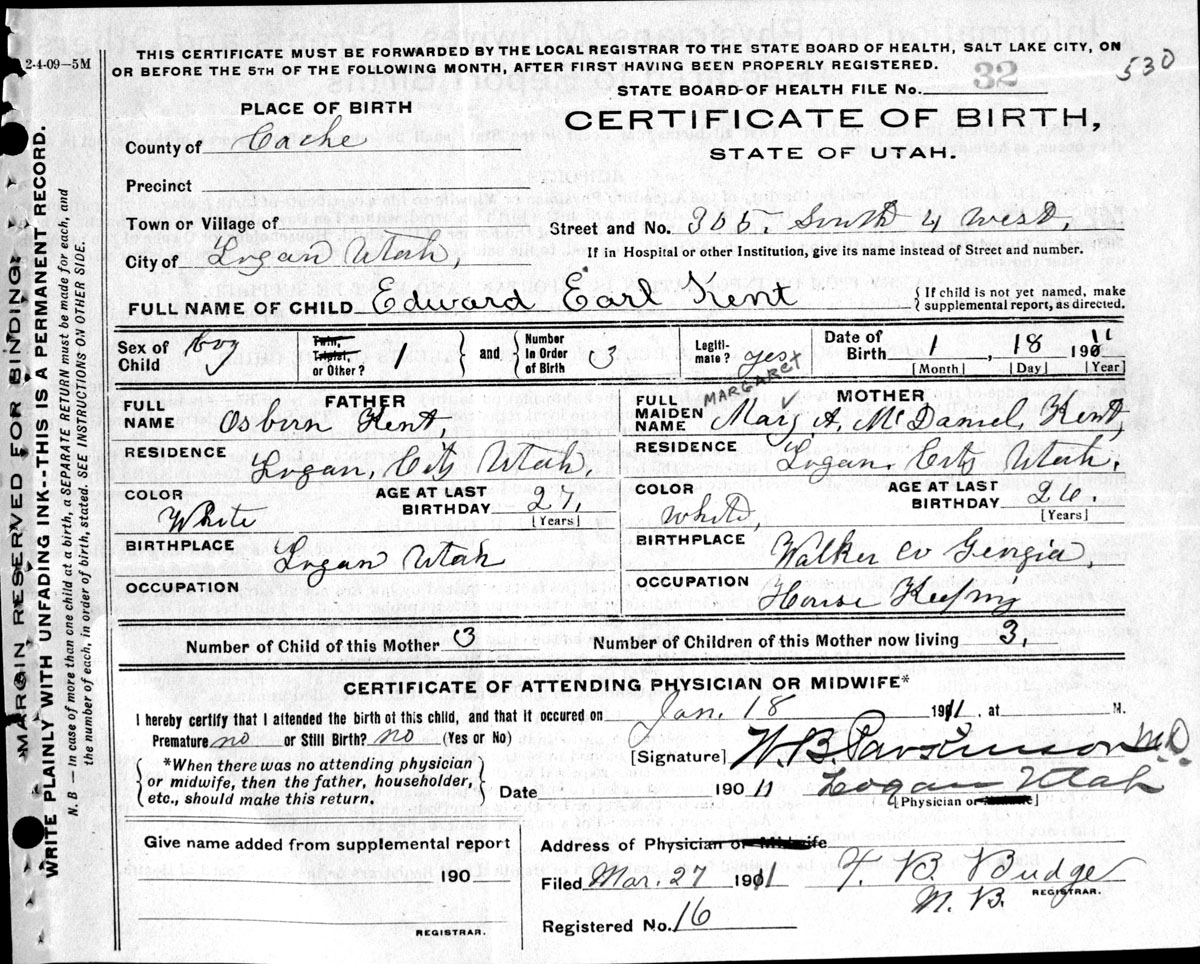 2-4-09-5M
THIS CERTIFICATE MUST BE FORWARDED BY THE LOCAL REGISTRAR TO THE STATE BOARD OF HEALTH, SALT LAKE CITY, ON
OR BEFORE THE 5TH OF THE FOLLOWING MONTH, AFTER FIRST HAVING BEEN PROPERLY REGISTERED.
530
STATE BOARD OF HEALTH FILE No. 32
PLACE OF BIRTH
CERTIFICATE OF BIRTH,
STATE OF UTAH.
County of Cache
Precinct
Town or Village of
Street and No. 305. South 4 West,
City of Logan Utah,
If in Hospital or other Institution, give its name instead of Street and number.
FULL NAME OF CHILD Edward Earl Kent
{ If child is not yet named, make
supplemental report, as directed.
Sex of Child boy
Twin, Triplet, or Other? 1 } and { Number In Order of Birth 3
Legiti-mate? yes x
Date of Birth 1, 18 1911
[Month] [Day] [Year]
FATHER
FULL NAME Osborn Kent,
RESIDENCE Logan, City Utah,
COLOR White
AGE AT LAST BIRTHDAY 27,
[Years]
BIRTHPLACE Logan Utah
OCCUPATION
MOTHER
MARGARET
FULL MAIDEN NAME Mary A. McDaniel, Kent,
RESIDENCE Logan. City Utah.
COLOR White,
AGE AT LAST BIRTHDAY 26.
[Years]
BIRTHPLACE Walker co Georgia,
OCCUPATION House Keeping
Number of Child of this Mother 3 Number of Children of this Mother now living 3,
CERTIFICATE OF ATTENDING PHYSICIAN OR MIDWIFE*
I hereby certify that I attended the birth of this child, and that it occured on Jan. 18 1911, at M.
Premature no or Still Birth? no (Yes or No)
[Signature] W. B. Parkinson M.D.
{ *When there was no attending physician
or midwife, then the father, householder,
etc., should make this return. }
Date 190 11 Logan Utah
[Physician or Midwife]
Give name added from supplemental report
190
REGISTRAR.
Address of Physician or Midwife
Filed Mar. 27 1911 T. B. Budge
M. B. REGISTRAR.
Registered No. 16
MARGIN RESERVED FOR BINDING
WRITE PLAINLY WITH UNFADING INK--THIS IS A PERMANENT RECORD.
N. B — In case of more than one child at a birth, a SEPARATE RETURN must be made for each, and
the number of each, in order of birth, stated. SEE INSTRUCTIONS ON OTHER SIDE.